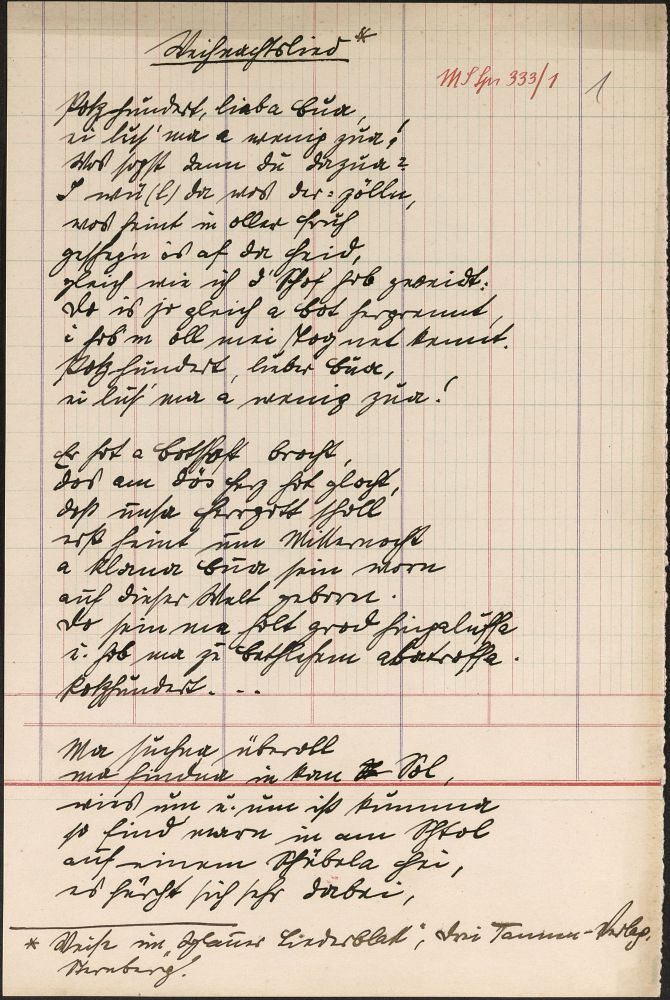 Weihnachtslied *
MS Spr 333/1 1
Potz hundert, lieba Bua,
ei lus' ma a wenig zua!
Wos sogst denn du dazua?
I wü(l) da wos der=zölln,
wos heint in oller Früh
gschegn is af da Heid,
gleich wie ich d' Schof hob geweidt:
Do is jo gleich a Bot hergrennt,
i hob'n oll mei Tog net kennt.
Potz hundert, lieber Bua,
ei lus' ma a wenig zua!
Er hot a Botschoft brocht,
dos am dös Herz hot glocht,
doß unsa Herrgott scholl
erst heint um Mitternocht
a klana Bua sein worn
auf dieser Welt geborn.
Do sein ma holt grod hingaluffa
u. hob ma ze Bethlehem
Potzhundert. . .
Ma suchna überoll
ma findna in kan Sol,
wies um u. um ist kumma
so find marn in am Schtol
auf einem Schübela Hei,
es sich sehr dabei,
* Weise im "Iglauer Liederblatt", Drei Tannen-Verlag,
Sternberg.